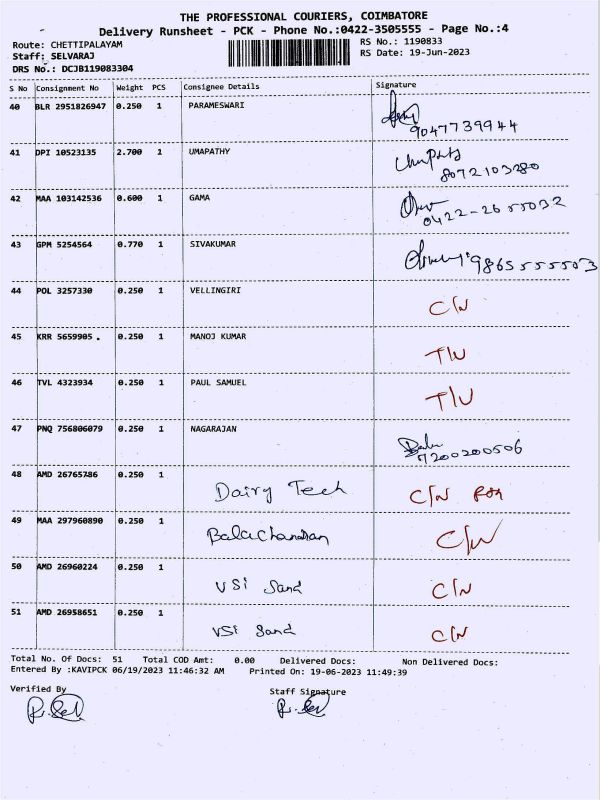 THE PROFESSIONAL COURIERS, COIMBATORE
Delivery Runsheet - PCK - Phone No.:0422-3505555 - Page No.:4
Route: CHETTIPALAYAM RS No.: 1190833
Staff: SELVARAJ RS Date: 19-Jun-2023
DRS No.: DCJB119083304
S No Consignment No Weight PCS Consignee Details Signature
40 BLR 2951826947 0.250 1 PARAMESWARI
9047739944
41 DPI 10523135 2.700 1 UMAPATHY
8072103280
42 MAA 103142536 0.600 1 GAMA
0422-2655032
43 GPM 5254564 0.770 1 SIVAKUMAR
9865555503
44 POL 3257330 0.250 1 VELLINGIRI C/N
45 KRR 5659905 . 0.250 1 MANOJ KUMAR T/U
46 TVL 4323934 0.250 1 PAUL SAMUEL T/U
47 PNQ 756806079 0.250 1 NAGARAJAN
7200200506
48 AMD 26765786 0.250 1 Dairy Tech C/N
49 MAA 297960890 0.250 1 Balachandran C/N
50 AMD 26960224 0.250 1 VSI Sand C/N
51 AMD 26958651 0.250 1 VSI Sand C/N
Total No. Of Docs: 51 Total COD Amt: 0.00 Delivered Docs: Non Delivered Docs:
Entered By :KAVIPCK 06/19/2023 11:46:32 AM Printed On: 19-06-2023 11:49:39
Verified By Staff Signature